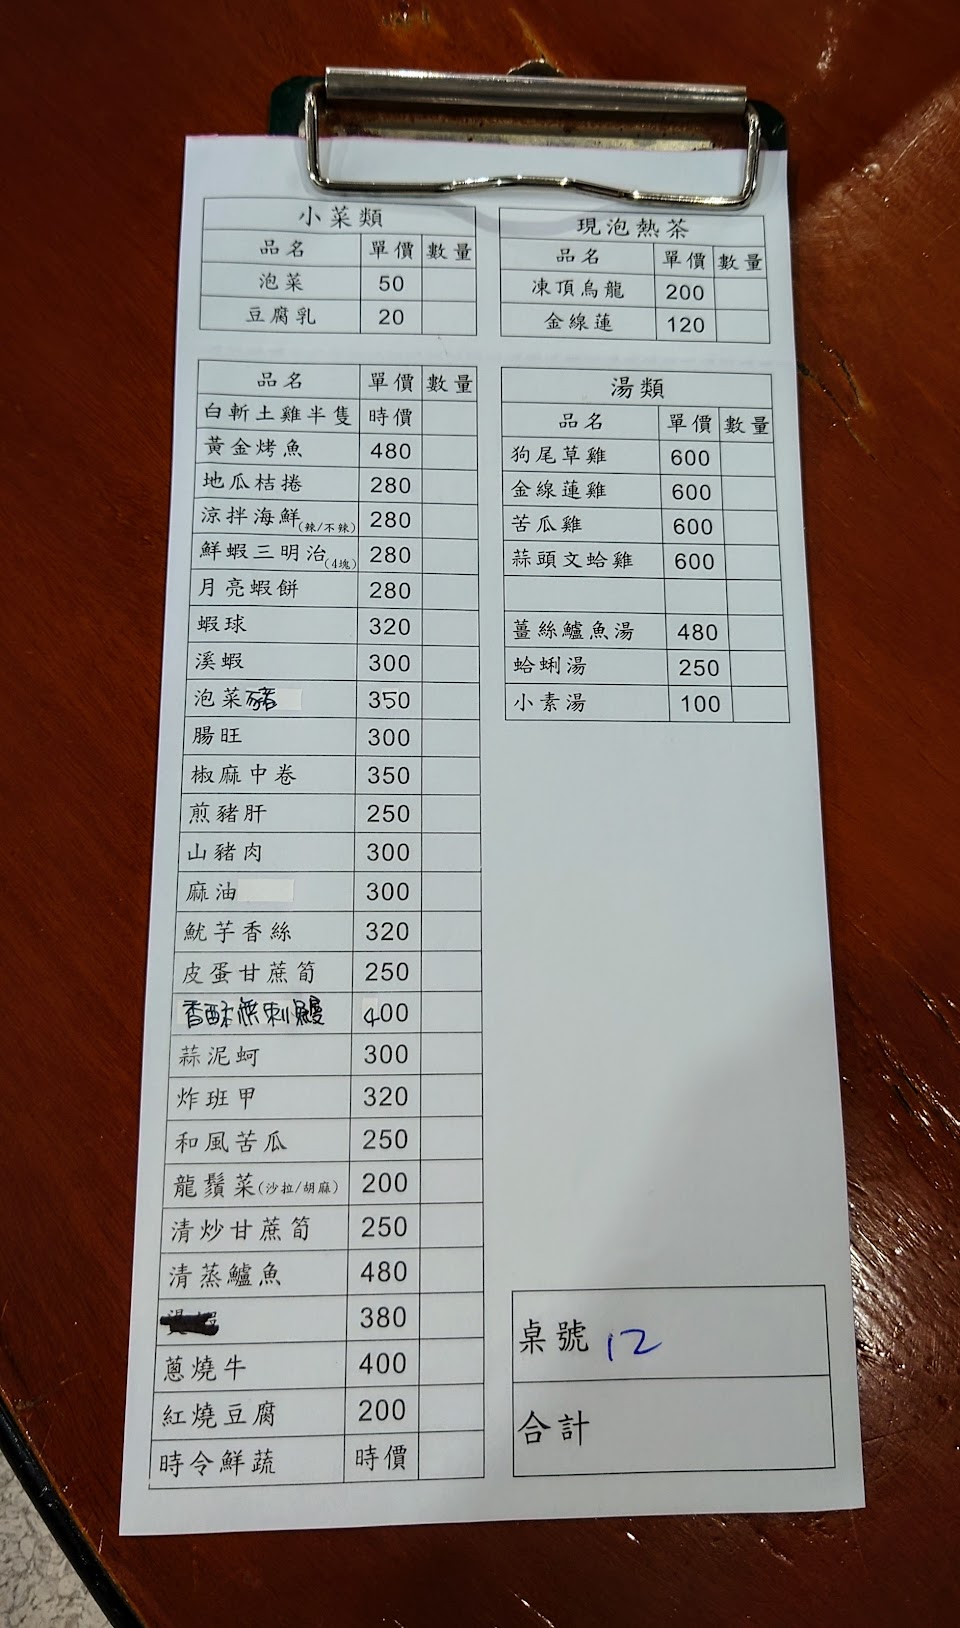 小菜類
品名 單價 數量
泡菜 50
豆腐乳 20
現泡熱茶
品名 單價 數量
凍頂烏龍 200
金線蓮 120
品名 單價 數量
白斬土雞半隻 時價
黃金烤魚 480
地瓜桔捲 280
涼拌海鮮(辣/不辣) 280
鮮蝦三明治(4塊) 280
月亮蝦餅 280
蝦球 320
溪蝦 300
泡菜豬 350
腸旺 300
椒麻中卷 350
煎豬肝 250
山豬肉 300
麻油 300
魷芋香絲 320
皮蛋甘蔗筍 250
香酥無刺鰻 400
蒜泥蚵 300
炸班甲 320
和風苦瓜 250
龍鬚菜(沙拉/胡麻) 200
清炒甘蔗筍 250
清蒸鱸魚 480
380
蔥燒牛 400
紅燒豆腐 200
時令鮮蔬 時價
湯類
品名 單價 數量
狗尾草雞 600
金線蓮雞 600
苦瓜雞 600
蒜頭文蛤雞 600
薑絲鱸魚湯 480
蛤蜊湯 250
小素湯 100
桌號 12
合計